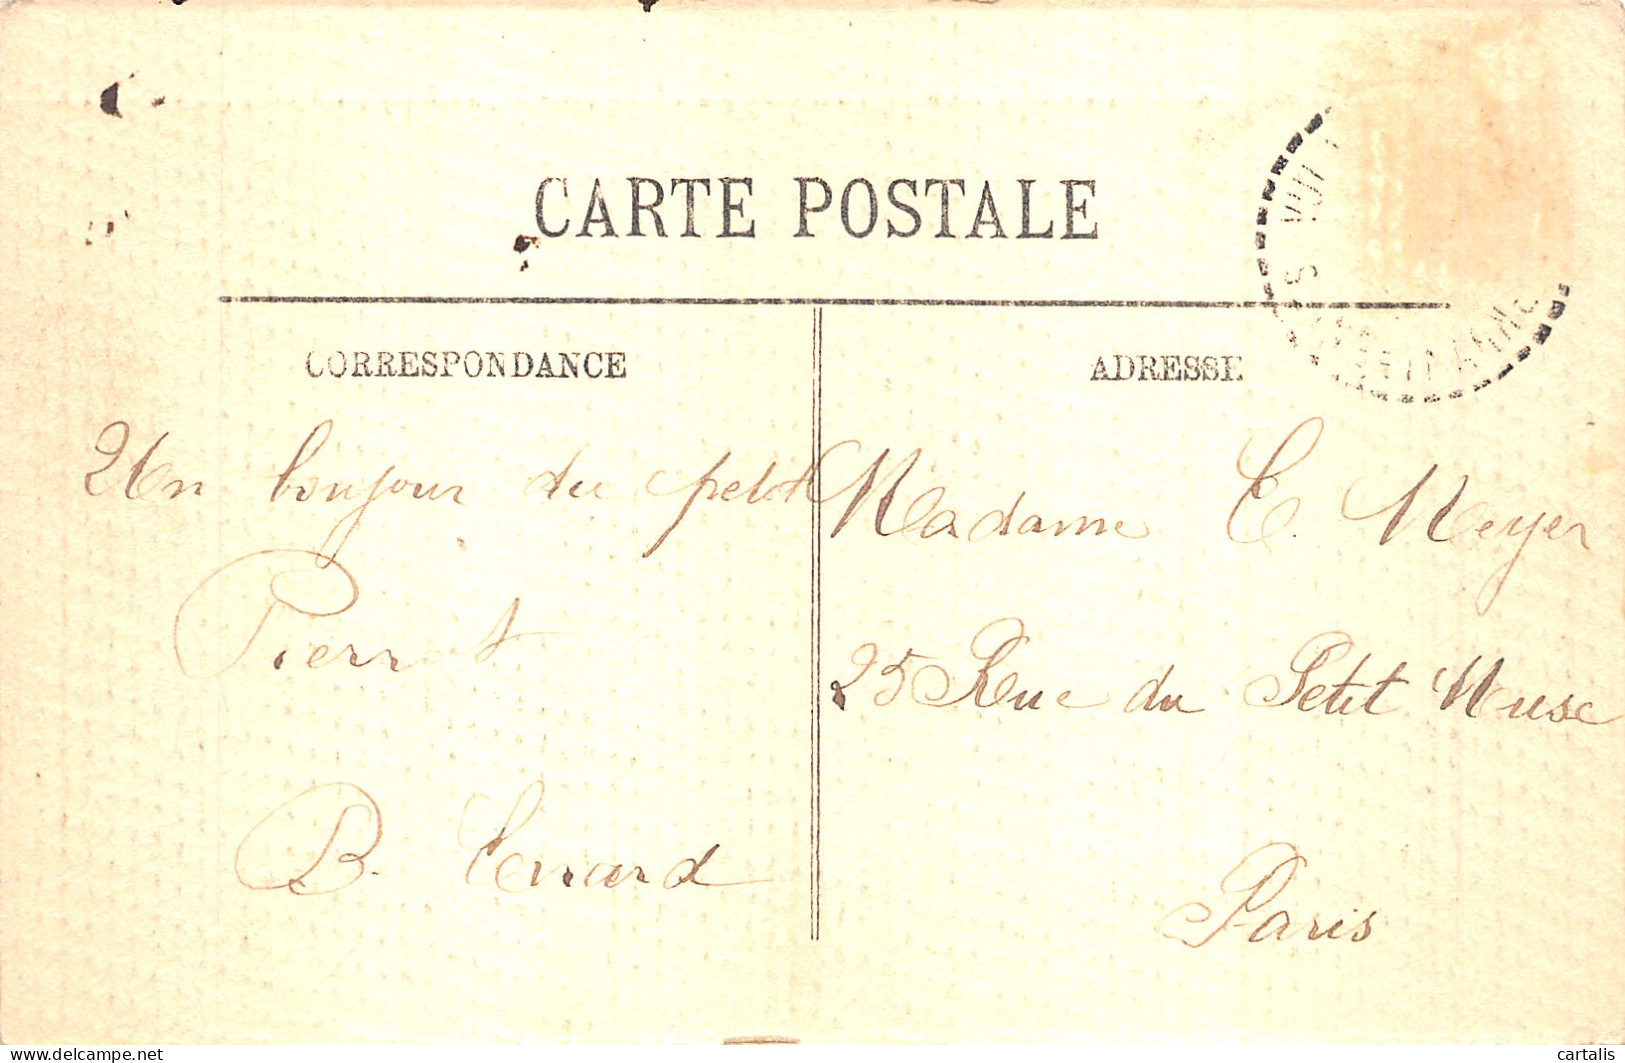 CARTE POSTALE
CORRESPONDANCE
ADRESSE
Un bonjour du petit
Pierrot
B.
Madame E. Meyer
25 Rue du Petit Musc
Paris
www.delcampe.net
cartalis